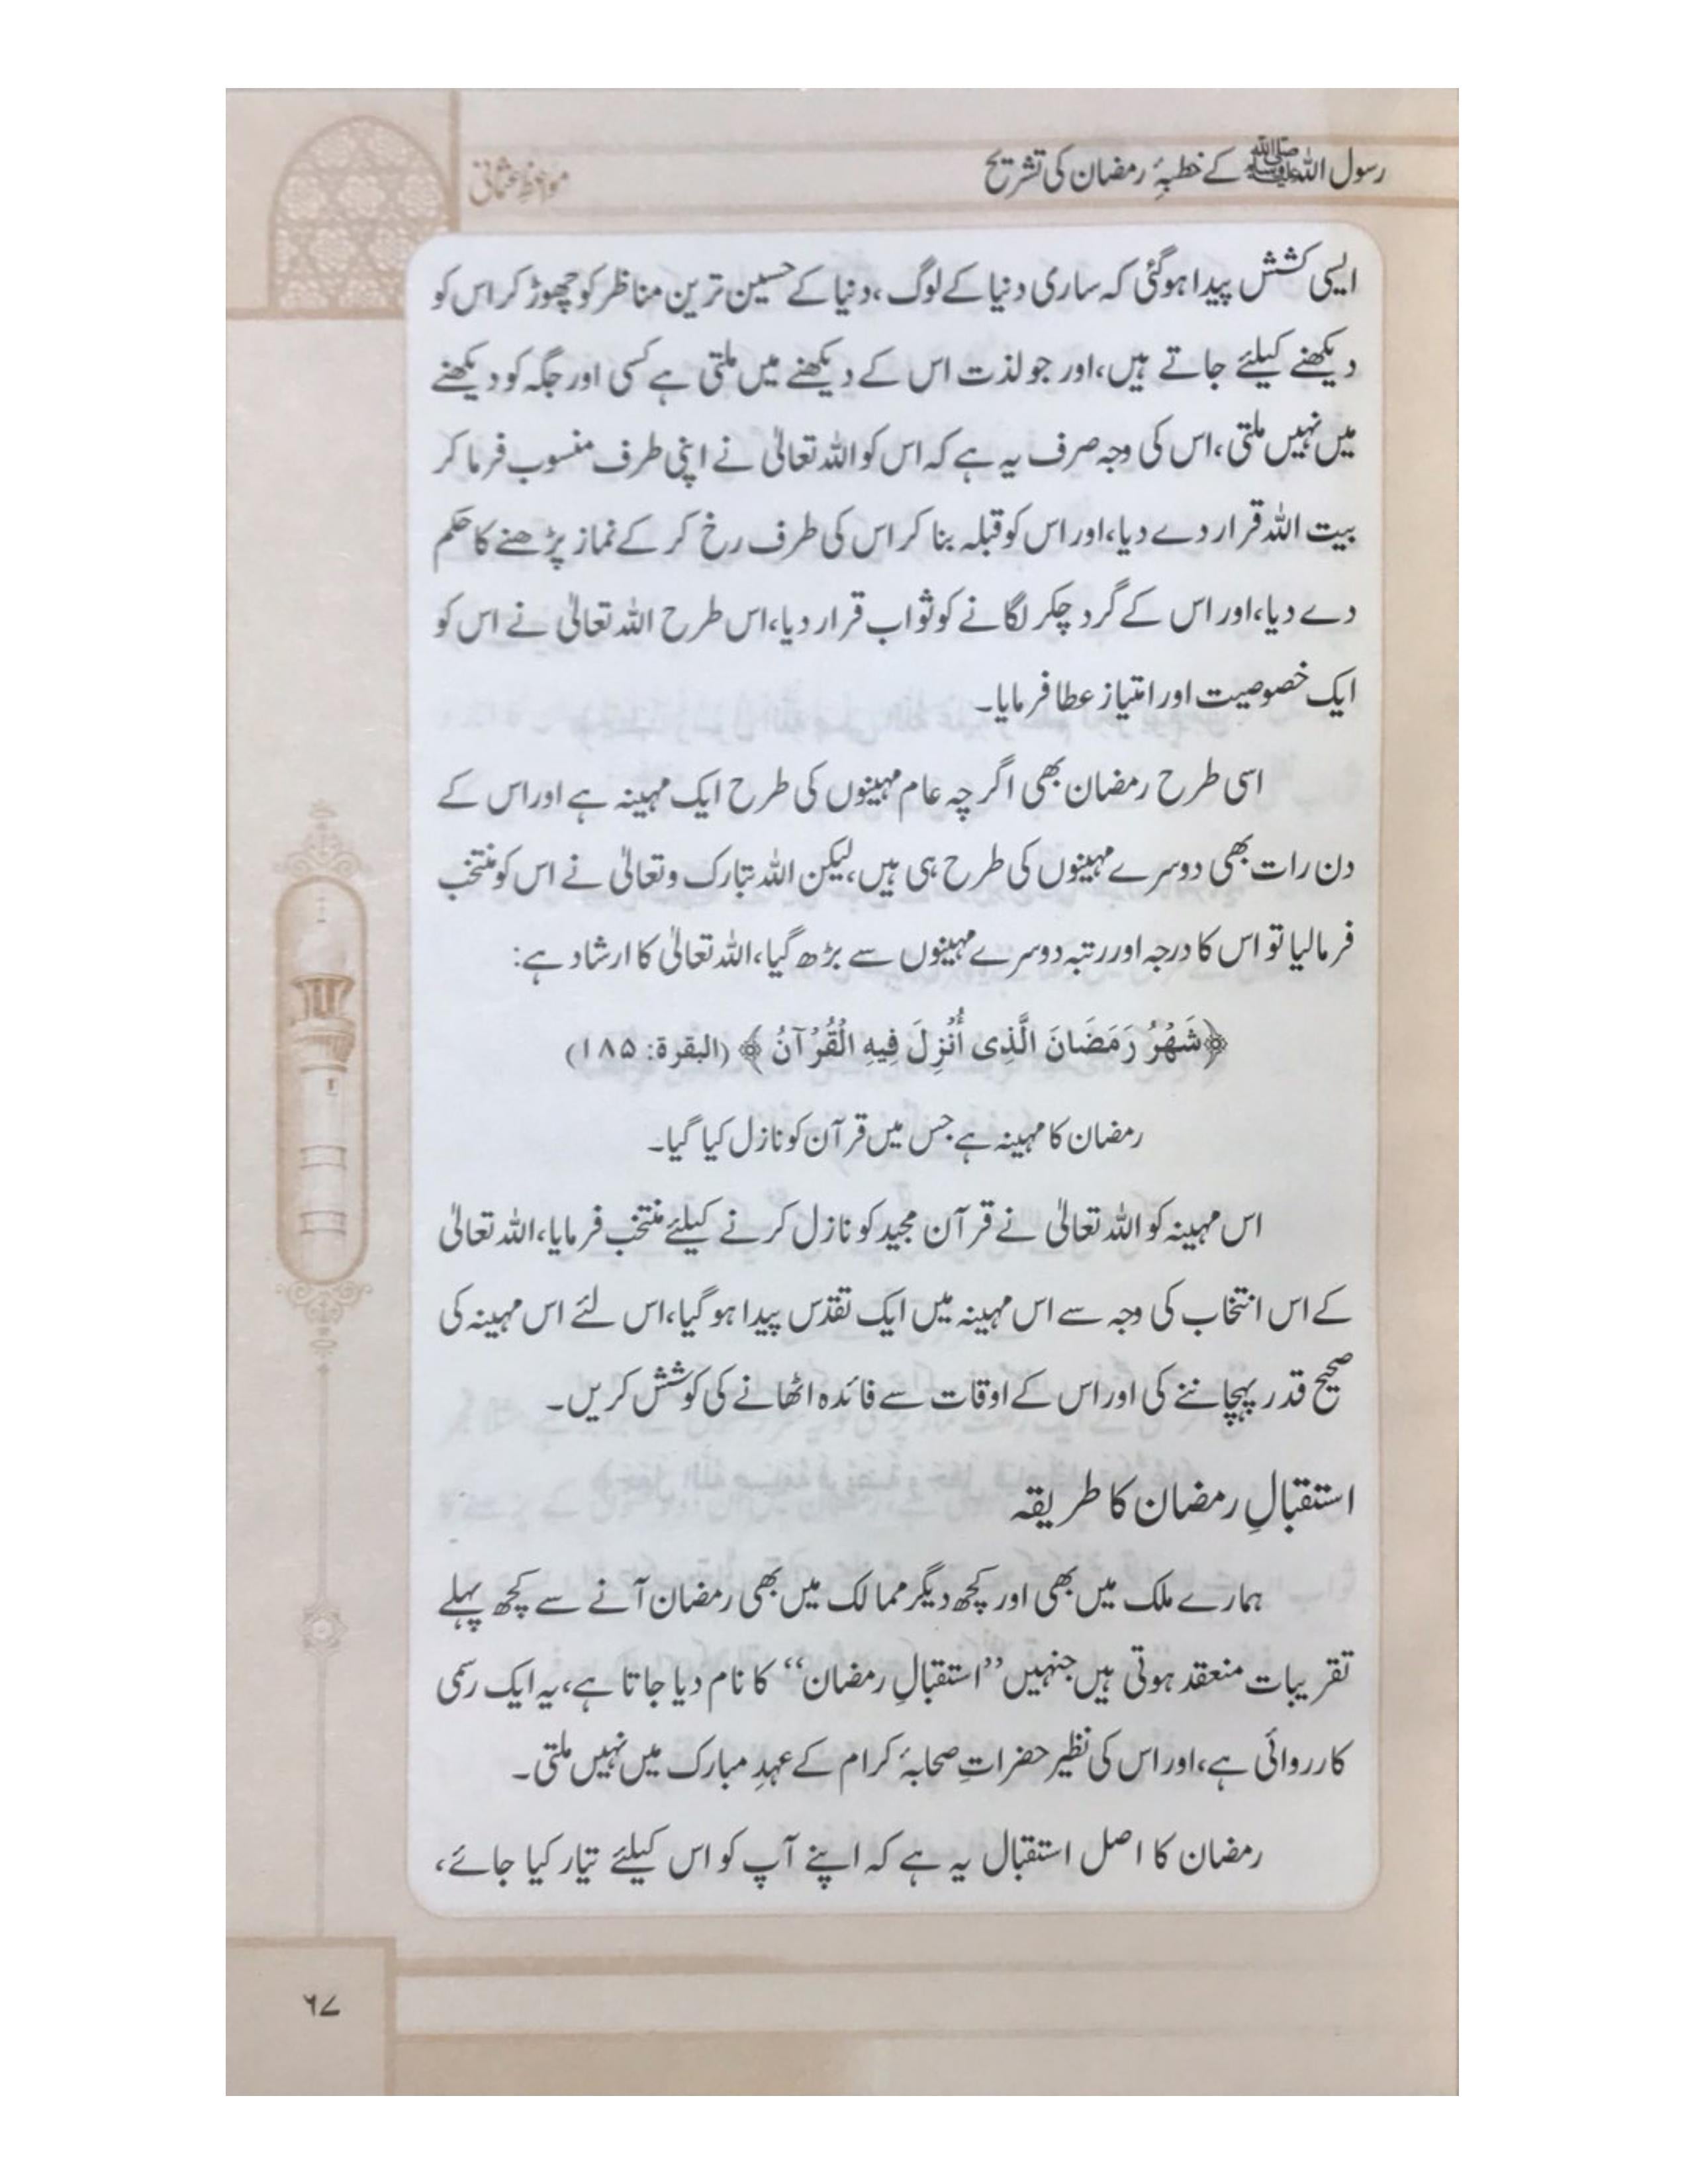 رسول اللہ ﷺ کے خطبۂ رمضان کی تشریح
مواعظِ عثمانی
ایسی کشش پیدا ہوگئی کہ ساری دنیا کے لوگ، دنیا کے حسین ترین مناظر کو چھوڑ کر اس کو
دیکھنے کیلئے جاتے ہیں، اور جو لذت اس کے دیکھنے میں ملتی ہے کسی اور جگہ کو دیکھنے
میں نہیں ملتی، اس کی وجہ صرف یہ ہے کہ اس کو اللہ تعالیٰ نے اپنی طرف منسوب فرما کر
بیت اللہ قرار دے دیا، اور اس کو قبلہ بنا کر اس کی طرف رخ کر کے نماز پڑھنے کا حکم
دے دیا، اور اس کے گرد چکر لگانے کو ثواب قرار دیا، اس طرح اللہ تعالیٰ نے اس کو
ایک خصوصیت اور امتیاز عطا فرمایا۔
اسی طرح رمضان بھی اگرچہ عام مہینوں کی طرح ایک مہینہ ہے اور اس کے
دن رات بھی دوسرے مہینوں کی طرح ہی ہیں، لیکن اللہ تبارک وتعالیٰ نے اس کو منتخب
فرمالیا تو اس کا درجہ اور رتبہ دوسرے مہینوں سے بڑھ گیا، اللہ تعالیٰ کا ارشاد ہے:
﴿شَهْرُ رَمَضَانَ الَّذِی أُنْزِلَ فِيهِ الْقُرْآنُ﴾ (البقرة: ۱۸۵)
رمضان کا مہینہ ہے جس میں قرآن کو نازل کیا گیا۔
اس مہینہ کو اللہ تعالیٰ نے قرآن مجید کو نازل کرنے کیلئے منتخب فرمایا، اللہ تعالیٰ
کے اس انتخاب کی وجہ سے اس مہینہ میں ایک تقدّس پیدا ہو گیا، اس لئے اس مہینہ کی
صحیح قدر پہچاننے کی اور اس کے اوقات سے فائدہ اٹھانے کی کوشش کریں۔
استقبالِ رمضان کا طریقہ
ہمارے ملک میں بھی اور کچھ دیگر ممالک میں بھی رمضان آنے سے کچھ پہلے
تقریبات منعقد ہوتی ہیں جنہیں ”استقبالِ رمضان“ کا نام دیا جاتا ہے، یہ ایک رسمی
کارروائی ہے، اور اس کی نظیر حضراتِ صحابۂ کرام کے عہدِ مبارک میں نہیں ملتی۔
رمضان کا اصل استقبال یہ ہے کہ اپنے آپ کو اس کیلئے تیار کیا جائے،
۶۷